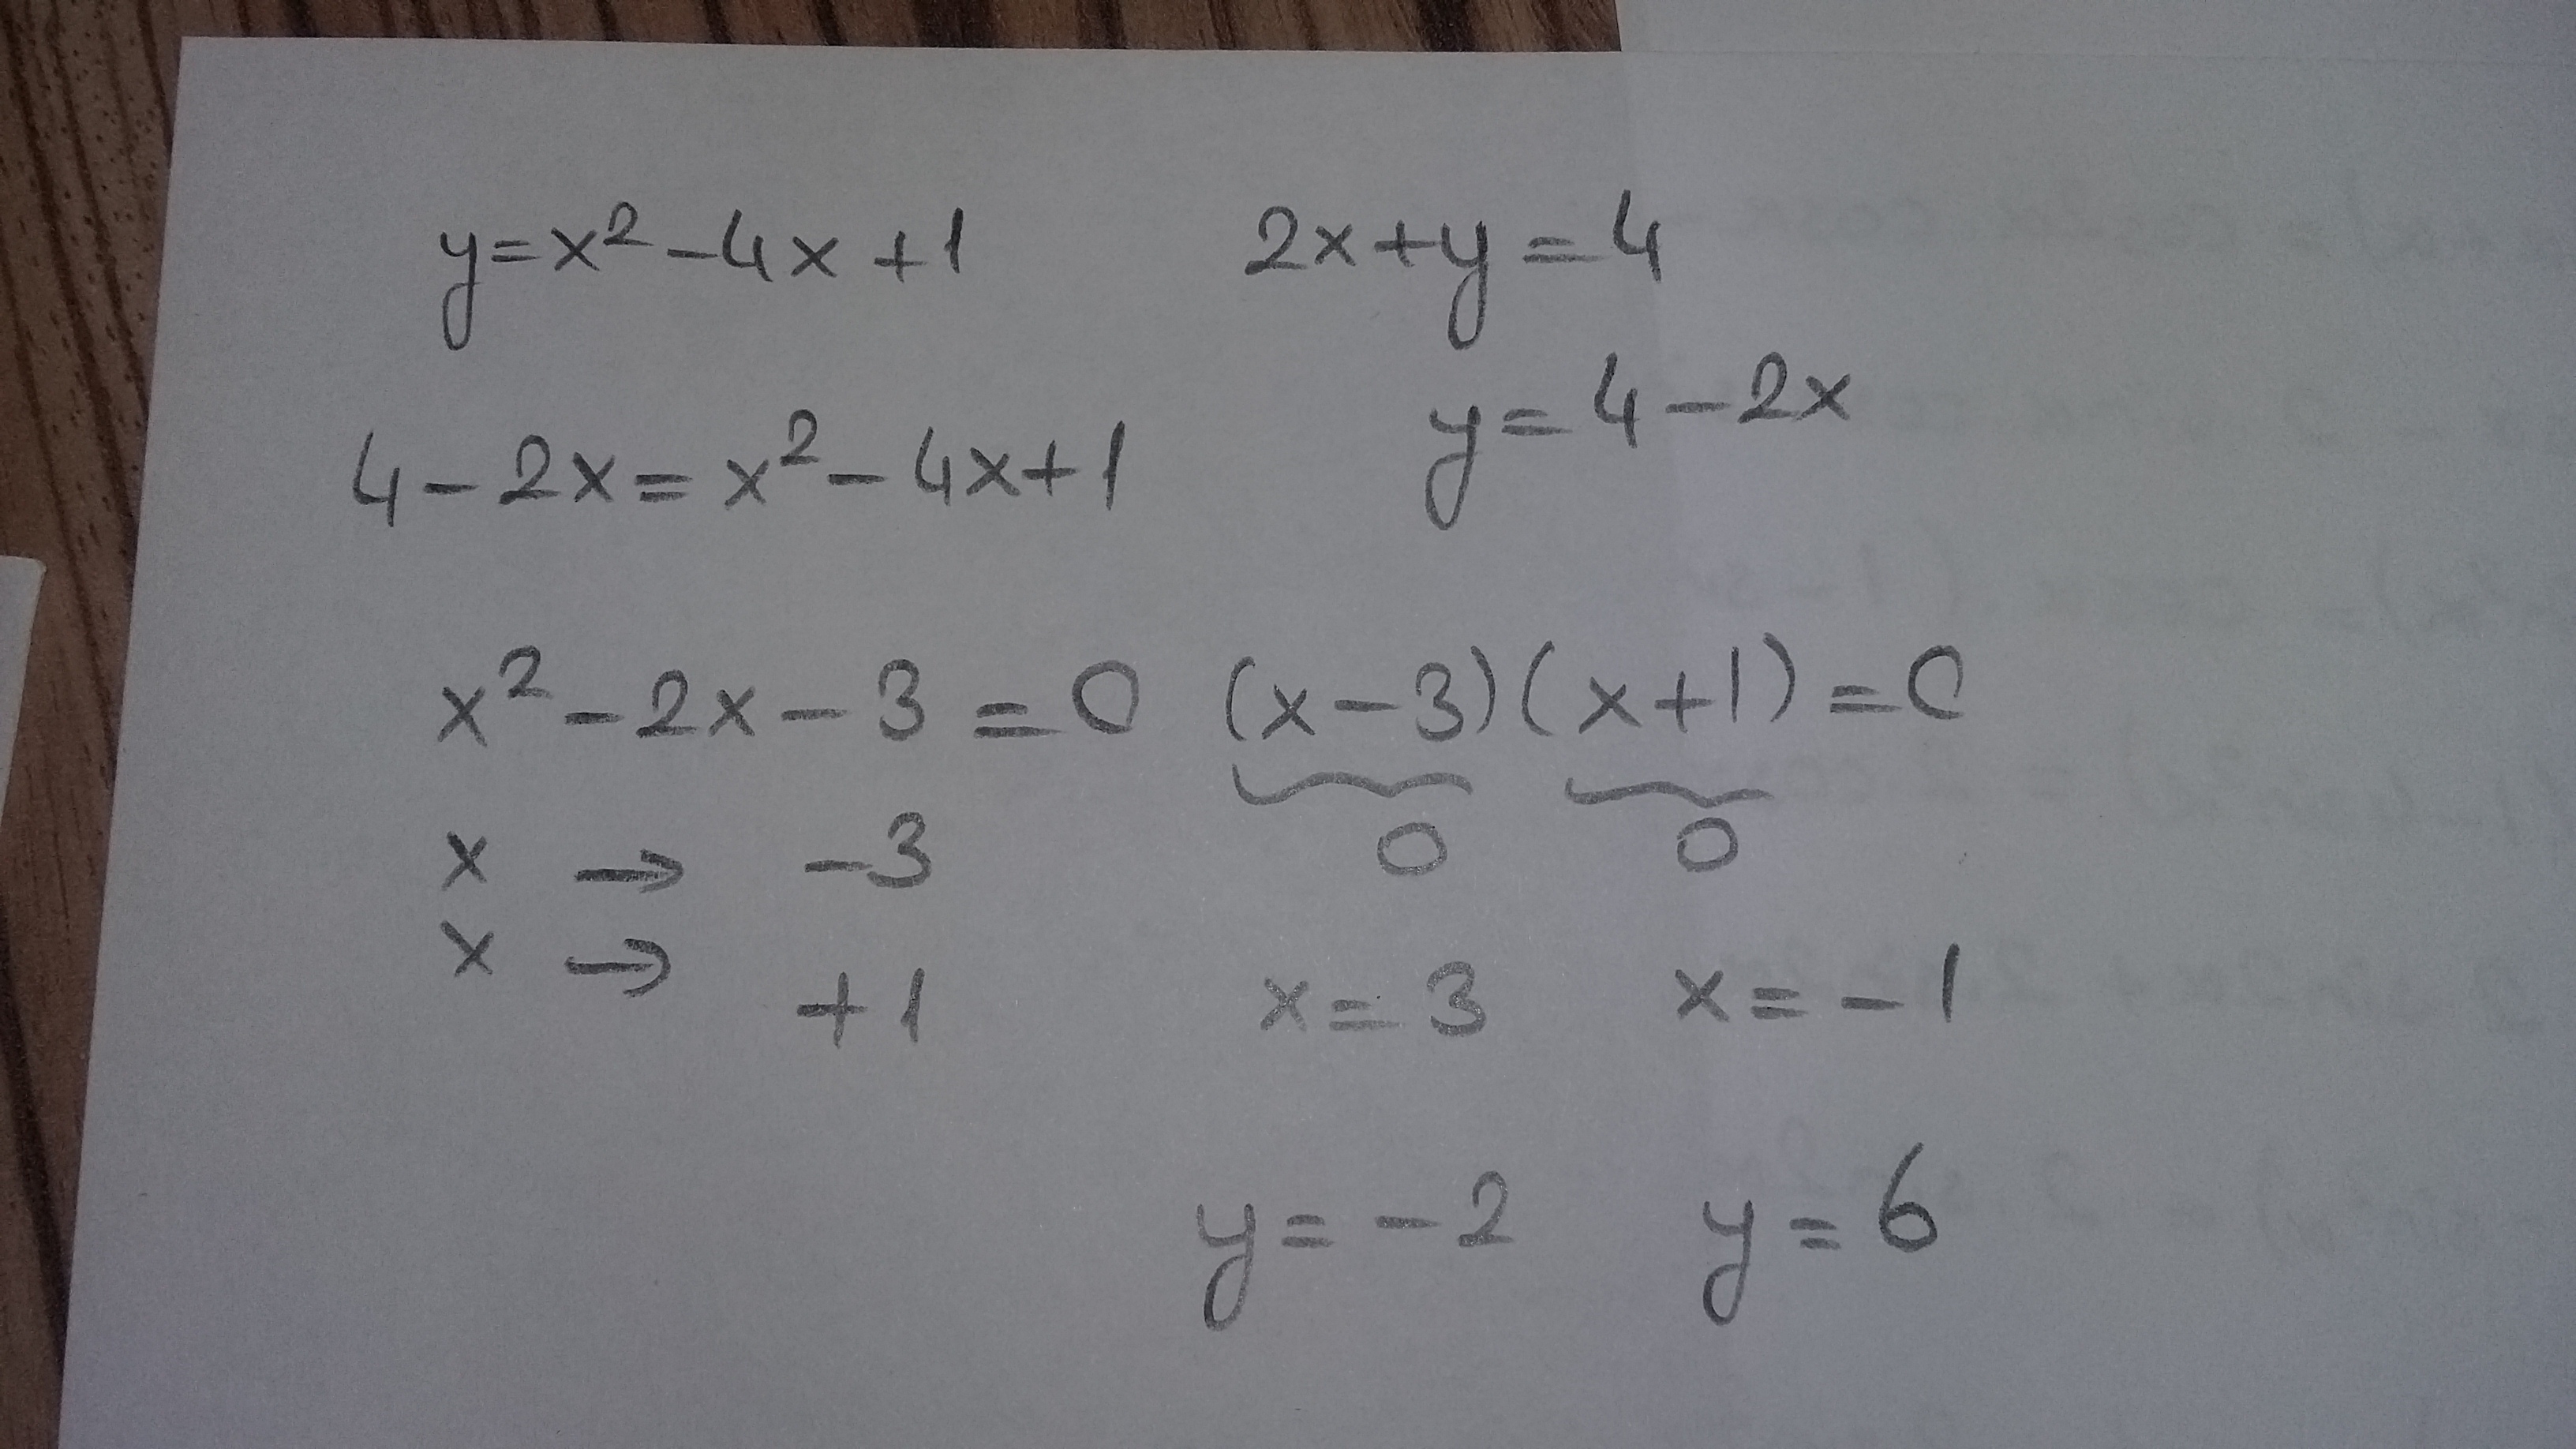 y=x²-4x+1 2x+y=4
y=4-2x
4-2x=x²-4x+1
x²-2x-3=0 (x-3)(x+1)=0
x → -3 0 0
x → +1 x=3 x=-1
y=-2 y=6